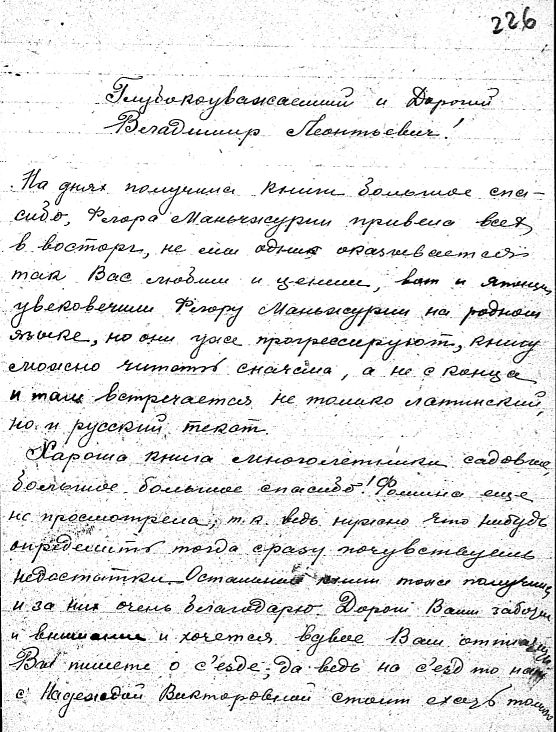 226
Глубокоуважаемый и Дорогой
Владимир Леонтьевич!
На днях получила книги большое спа-
сибо, Флора Маньчжурии привела всех
в восторг, не мы одни оказывается
так Вас любим и ценим, вот и японцы
увековечили Флору Маньчжурии на родном
языке, но они уже прогрессируют, книгу
можно читать сначала, а не с конца
и там встречается не только латинский,
но и русский текст.
Хароша книга многолетники садовые,
большое большое спасибо! Фомина еще
не просмотрела, т.к. ведь нужно что нибудь
определить тогда сразу почувствуешь
недостатки. Остальные книги тоже получила
и за них очень благодарю. Дороги Ваши заботы
и внимание и хочется вдвое Вам
Вы пишете о с'езде; да ведь на с'езд то нам
с Надеждой Викторовной стоит ехать только